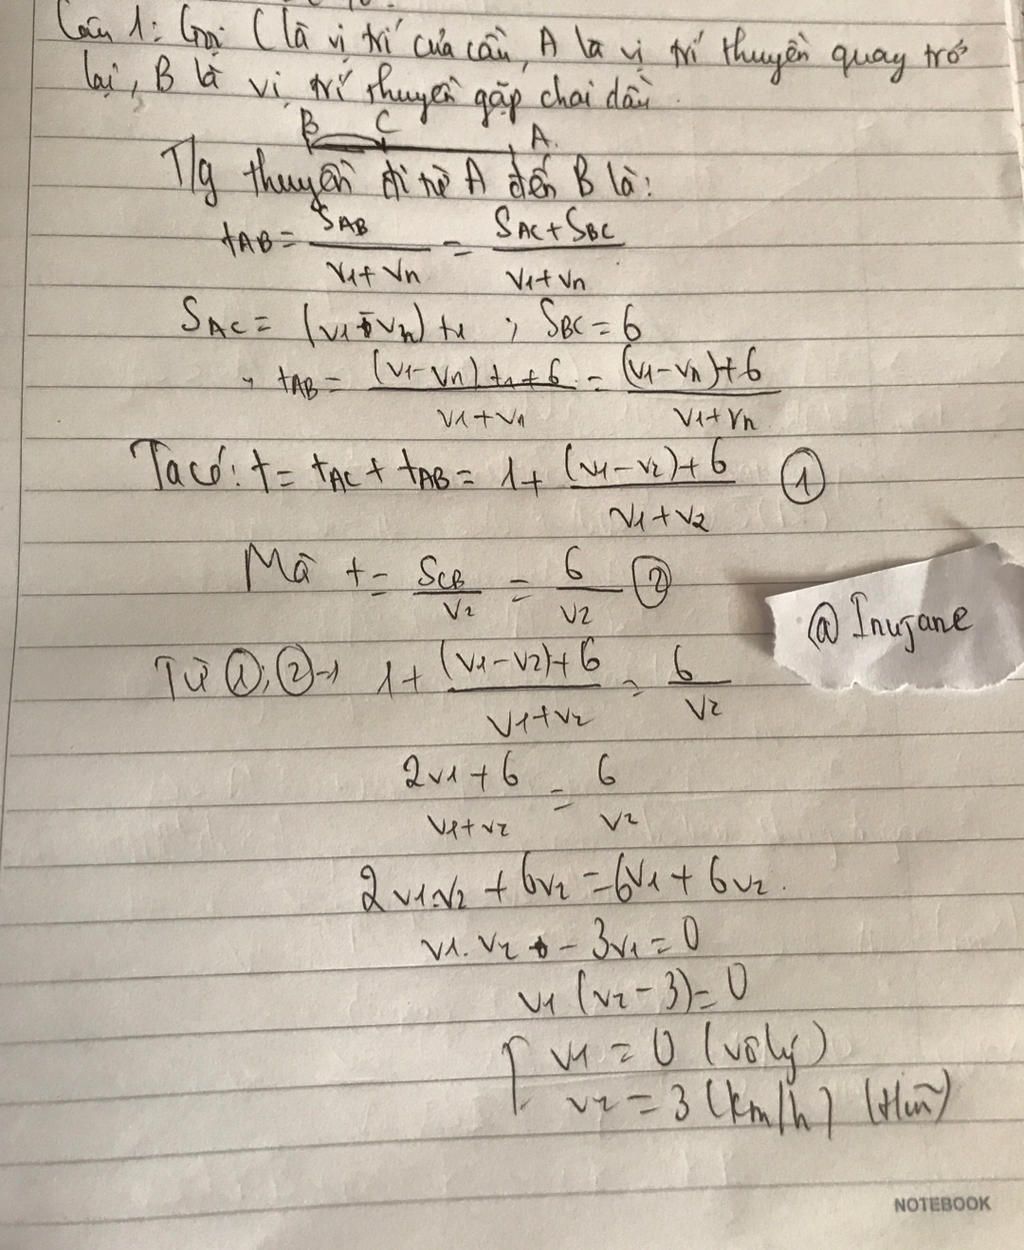 Câu 1: Gọi C là vị trí của cầu, A là vị trí thuyền quay trở
lại, B là vị trí thuyền gặp chai dầu.
B C A
T/g thuyền đi từ A đến B là:
tAB = SAB / (v1 + vn) = (SAC + SBC) / (v1 + vn)
SAC = (v1 - vn) t1 ; SBC = 6
tAB = ((v1 - vn) t1 + 6) / (v1 + vn) = ((v1 - vn) + 6) / (v1 + vn)
Ta có: t = tAC + tAB = 1 + ((v1 - v2) + 6) / (v1 + v2) ①
Mà t = SCB / v2 = 6 / v2 ②
@Inujane
Từ ①; ② → 1 + ((v1 - v2) + 6) / (v1 + v2) = 6 / v2
(2v1 + 6) / (v1 + v2) = 6 / v2
2v1.v2 + 6v2 = 6v1 + 6v2.
v1.v2 - 3v1 = 0
v1 (v2 - 3) = 0
[ v1 = 0 (vô lý)
v2 = 3 (km/h)
NOTEBOOK